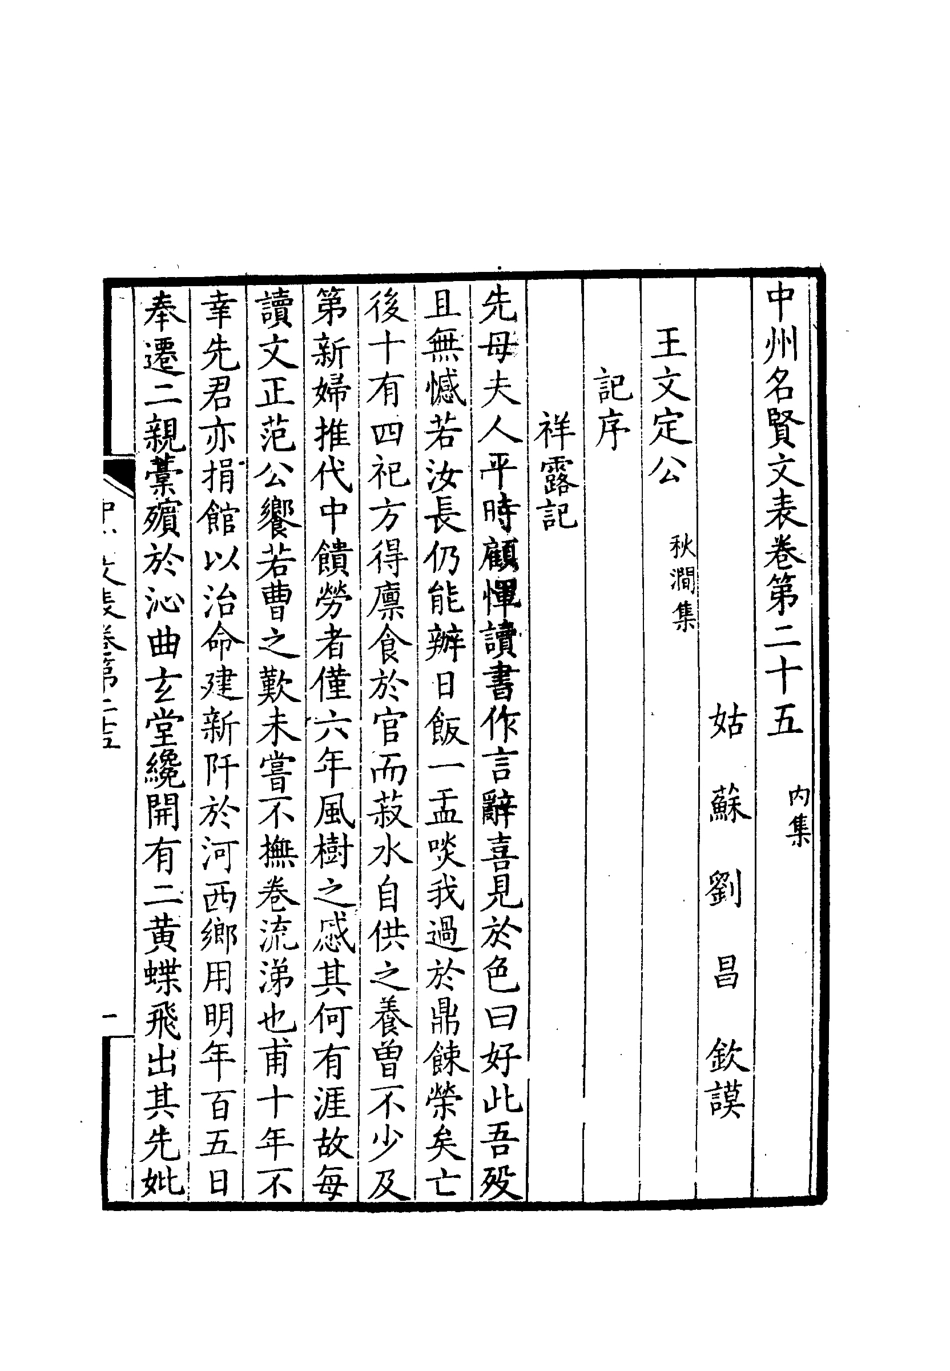 中州名賢文表卷第二十五 内集
姑蘇劉昌欽謨
王文定公 秋澗集
記序
祥露記
先母夫人平時顧惲讀書作言辭喜見於色曰好此吾歿
且無憾若汝長仍能辦日飯一盂啖我過於鼎餗榮矣亡
後十有四祀方得廪食於官而菽水自供之養曽不少及
第新婦推代中饋勞者僅六年風樹之感其何有涯故每
讀文正范公饗若曹之歎未嘗不撫卷流涕也甫十年不
幸先君亦捐館以治命建新阡於河西鄉用明年百五日
奉遷二親藁殯於沁曲玄堂纔開有二黄蝶飛出其先妣
中州文表卷第二十五
一